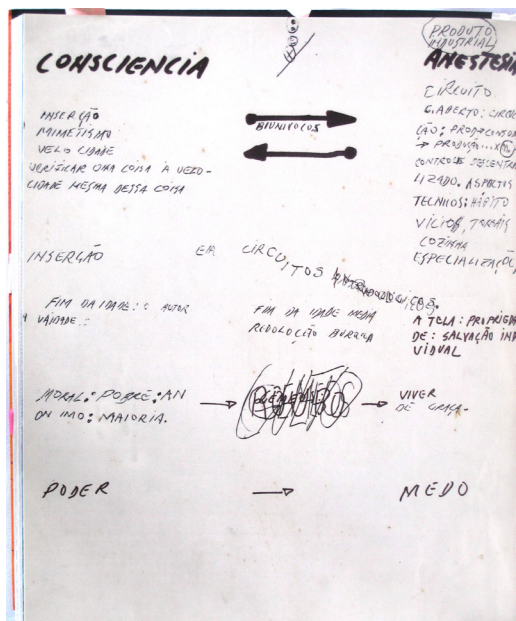 PRODUTO
INDUSTRIAL
CONSCIENCIA
ANESTESIA
CIRCUITO
INSERÇÃO
MIMETISMO
VELOCIDADE
VERIFICAR UMA COISA À VELO-
CIDADE MESMA DESSA COISA
BIUNIVOCOS
C. ABERTO: CIRCU
ÇÃO: PROD
→ PRODUÇÃO...X
CONTROLE DESCENTRA
LIZADO. ASPECTOS
TECNICOS: HÁBITO
VICIOS,
COZINHA
ESPECIALIZAÇÃO
INSERÇÃO EM CIRCUITOS
FIM DA IDADE: O AUTOR
VAIDADE:
FIM DA IDADE MEDIA
BURGUESA
A TELA: PROPRIEDA
DE: SALVAÇÃO INDI
VIDUAL
MORAL: POBRE: AN
ONIMO: MAIORIA. → → VIVER
DE GRAÇA.
PODER → MEDO